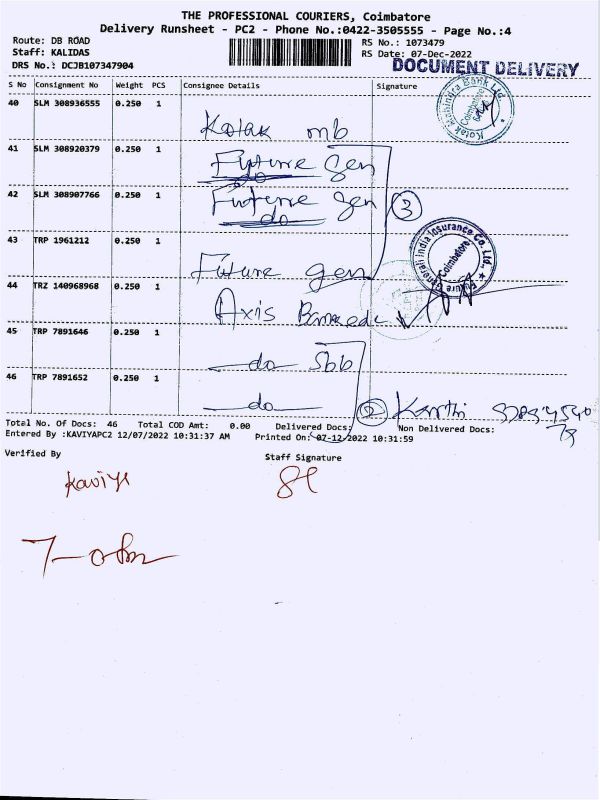 THE PROFESSIONAL COURIERS, Coimbatore
Delivery Runsheet - PC2 - Phone No.:0422-3505555 - Page No.:4
Route: DB ROAD
RS No.: 1073479
Staff: KALIDAS
RS Date: 07-Dec-2022
DRS No.: DCJB107347904
DOCUMENT DELIVERY
S No Consignment No Weight PCS Consignee Details Signature
40 SLM 308936555 0.250 1
Kotak Mahindra Bank Ltd.
Coimbatore
Kotak mb
41 SLM 308920379 0.250 1
Future Gen
do
42 SLM 308907766 0.250 1
Future Gen
do
3
43 TRP 1961212 0.250 1
Future Generali India Insurance Co. Ltd.,
Coimbatore.
Future gen
44 TRZ 140968968 0.250 1
Axis
45 TRP 7891646 0.250 1
do Sbb
46 TRP 7891652 0.250 1
do
2 Karthi
Total No. Of Docs: 46 Total COD Amt: 0.00 Delivered Docs: Non Delivered Docs:
Entered By :KAVIYAPC2 12/07/2022 10:31:37 AM Printed On: 07-12-2022 10:31:59
Verified By Staff Signature
Kaviya